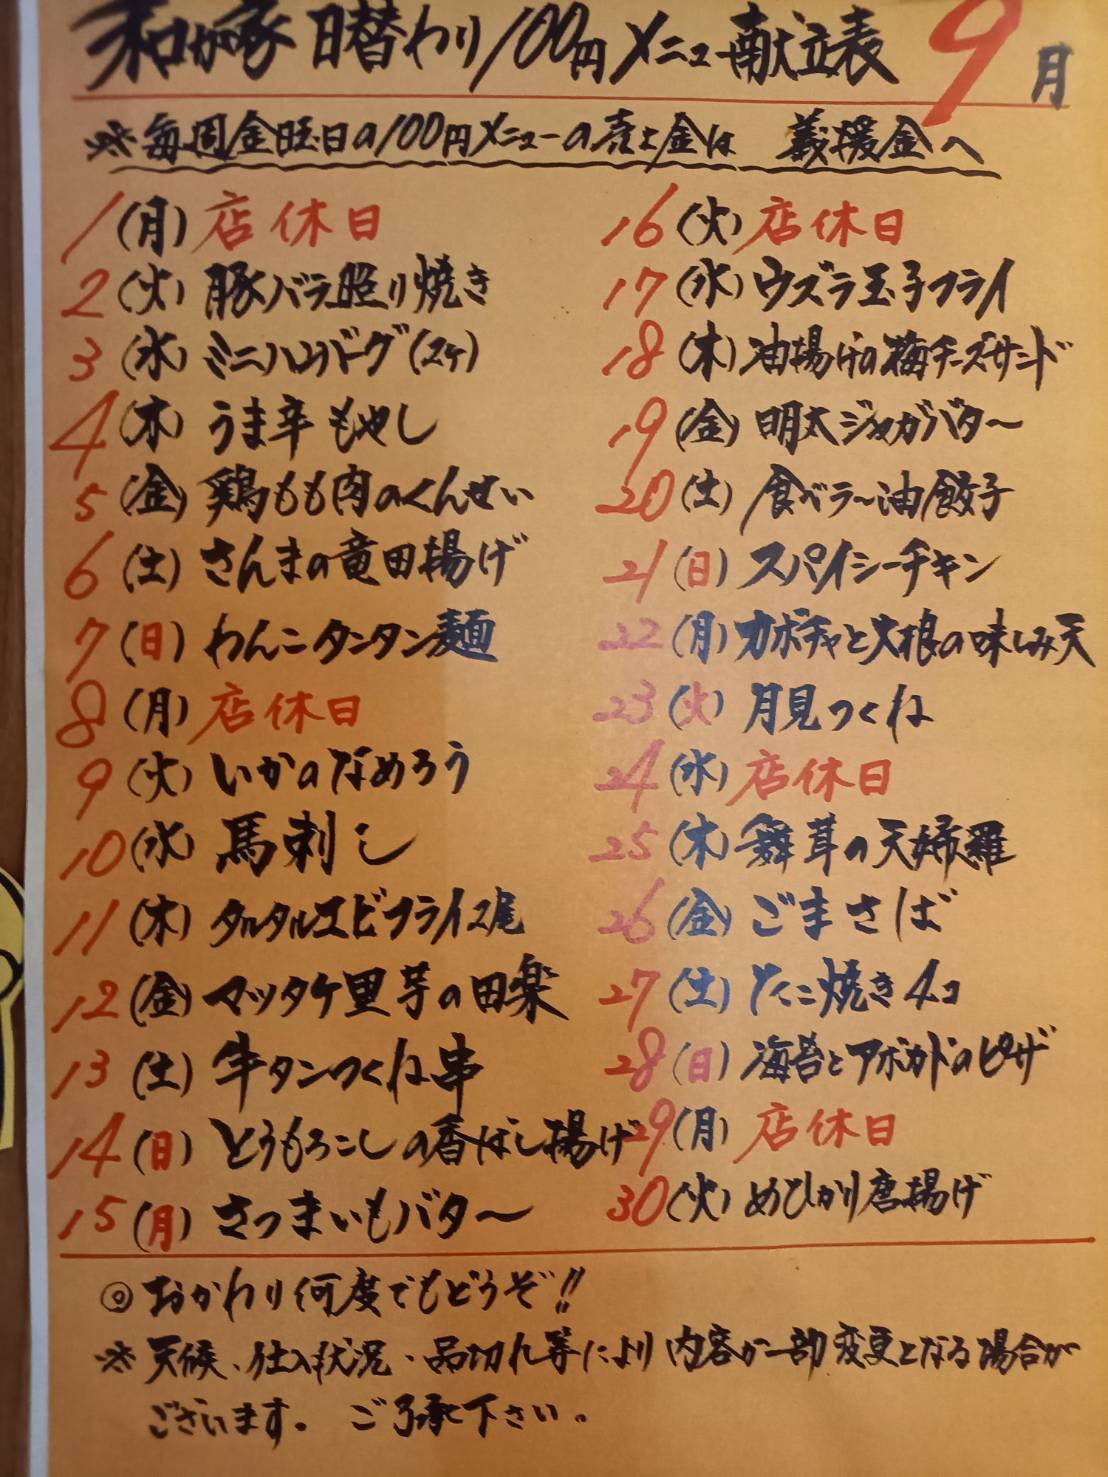 和が家 日替わり100円メニュー献立表 9月
※毎週金曜日の100円メニューの売上金は 義援金へ
1(月) 店休日
2(火) 豚バラ照り焼き
3(水) ミニハンバーグ(2ヶ)
4(木) うま辛もやし
5(金) 鶏もも肉のくんせい
6(土) さんまの竜田揚げ
7(日) わんこタンタン麺
8(月) 店休日
9(火) いかのなめろう
10(水) 馬刺し
11(木) タルタルエビフライ2尾
12(金) マッタケ里芋の田楽
13(土) 牛タンつくね串
14(日) とうもろこしの香ばし揚げ
15(月) さつまいもバター
16(火) 店休日
17(水) ウズラ玉子フライ
18(木) 油揚げの梅チーズサンド
19(金) 明太ジャガバター
20(土) 食べラー油餃子
21(日) スパイシーチキン
22(月) カボチャと大根の味しみ天
23(火) 月見つくね
24(水) 店休日
25(木) 舞茸の天婦羅
26(金) ごまさば
27(土) たこ焼き4コ
28(日) 海苔とアボカドのピザ
29(月) 店休日
30(火) めひかり唐揚げ
◎おかわり何度でもどうぞ!!
※天候、仕入状況、品切れ等により内容が一部変更となる場合が
ございます。 ご了承下さい。